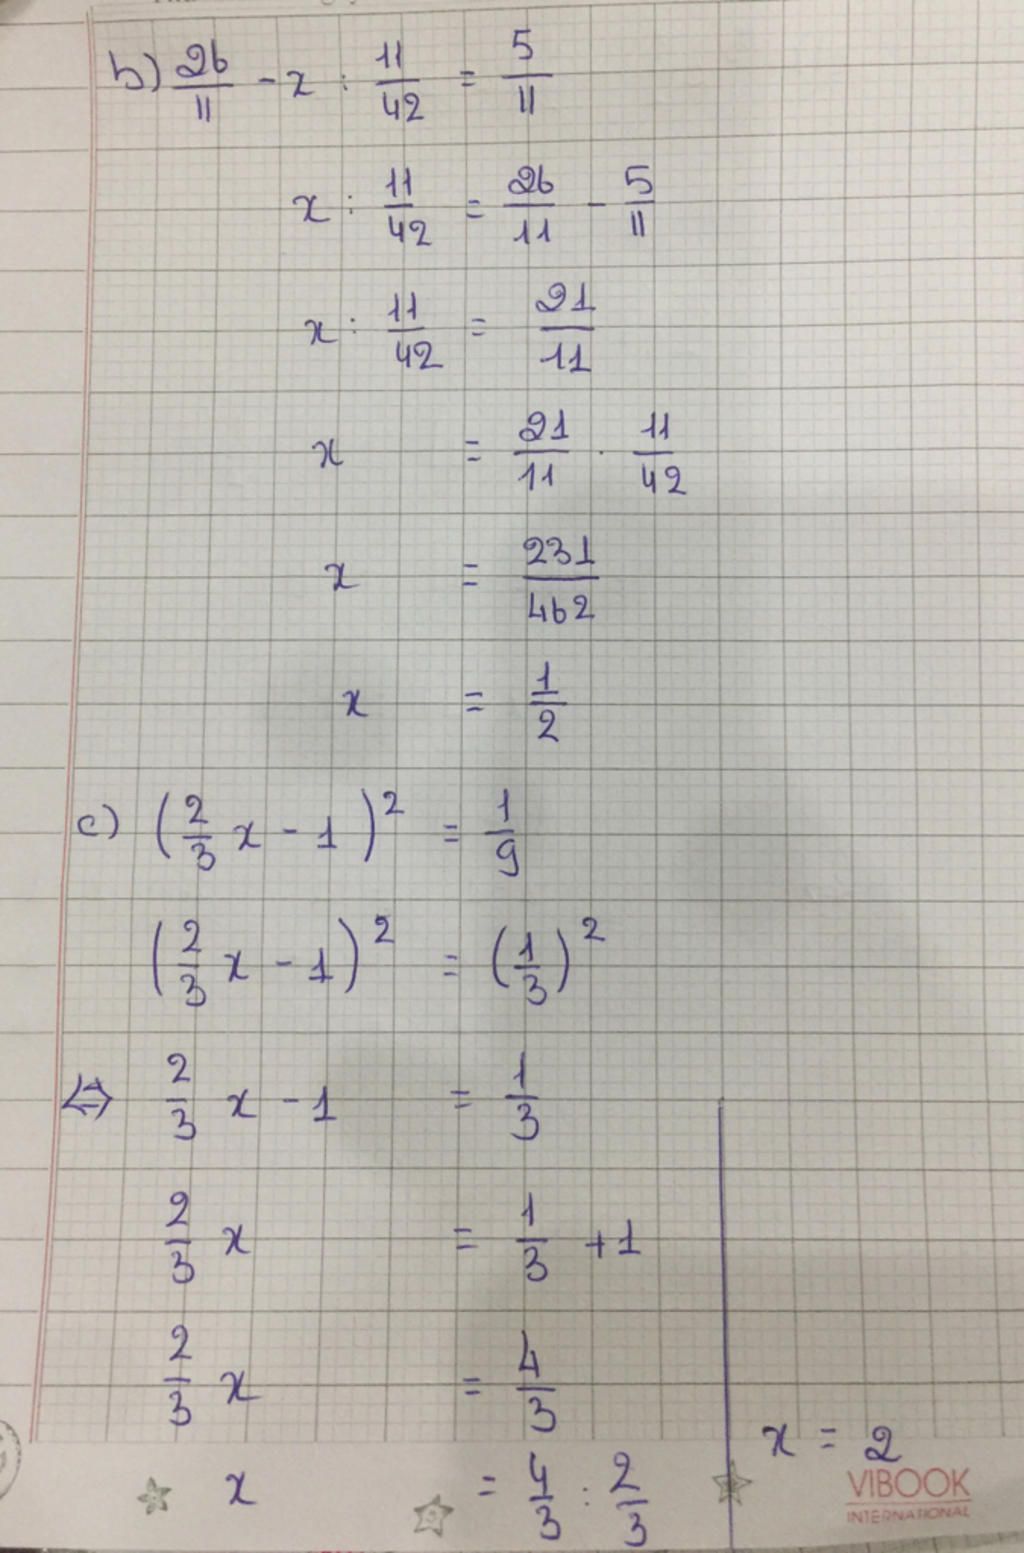 b) 26/11 - x : 11/42 = 5/11
x : 11/42 = 26/11 - 5/11
x : 11/42 = 21/11
x = 21/11 . 11/42
x = 231/462
x = 1/2
c) (2/3 x - 1)² = 1/9
(2/3 x - 1)² = (1/3)²
⇔ 2/3 x - 1 = 1/3
2/3 x = 1/3 + 1
2/3 x = 4/3
x = 4/3 : 2/3
x = 2
VIBOOK
INTERNATIONAL